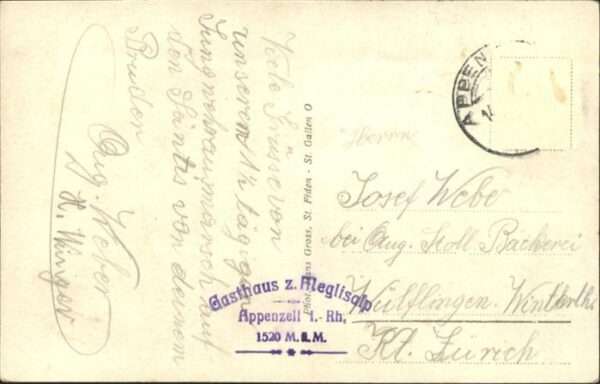 Viele Grüsse von
unserem 1½ tägigen
Jungwehrausmarsch auf
den Säntis von deinem
Bruder
Aug. Weber
H. Winger
Phot. Hans Gross, St. Fiden - St. Gallen O
Gasthaus z. Meglisalp
Appenzell I.-Rh.
1520 M.ü.M.
APPEN
Herrn
Josef Webe
bei Aug. Stoll Bäckerei
Wülflingen-Winterthur
Kt. Zürich